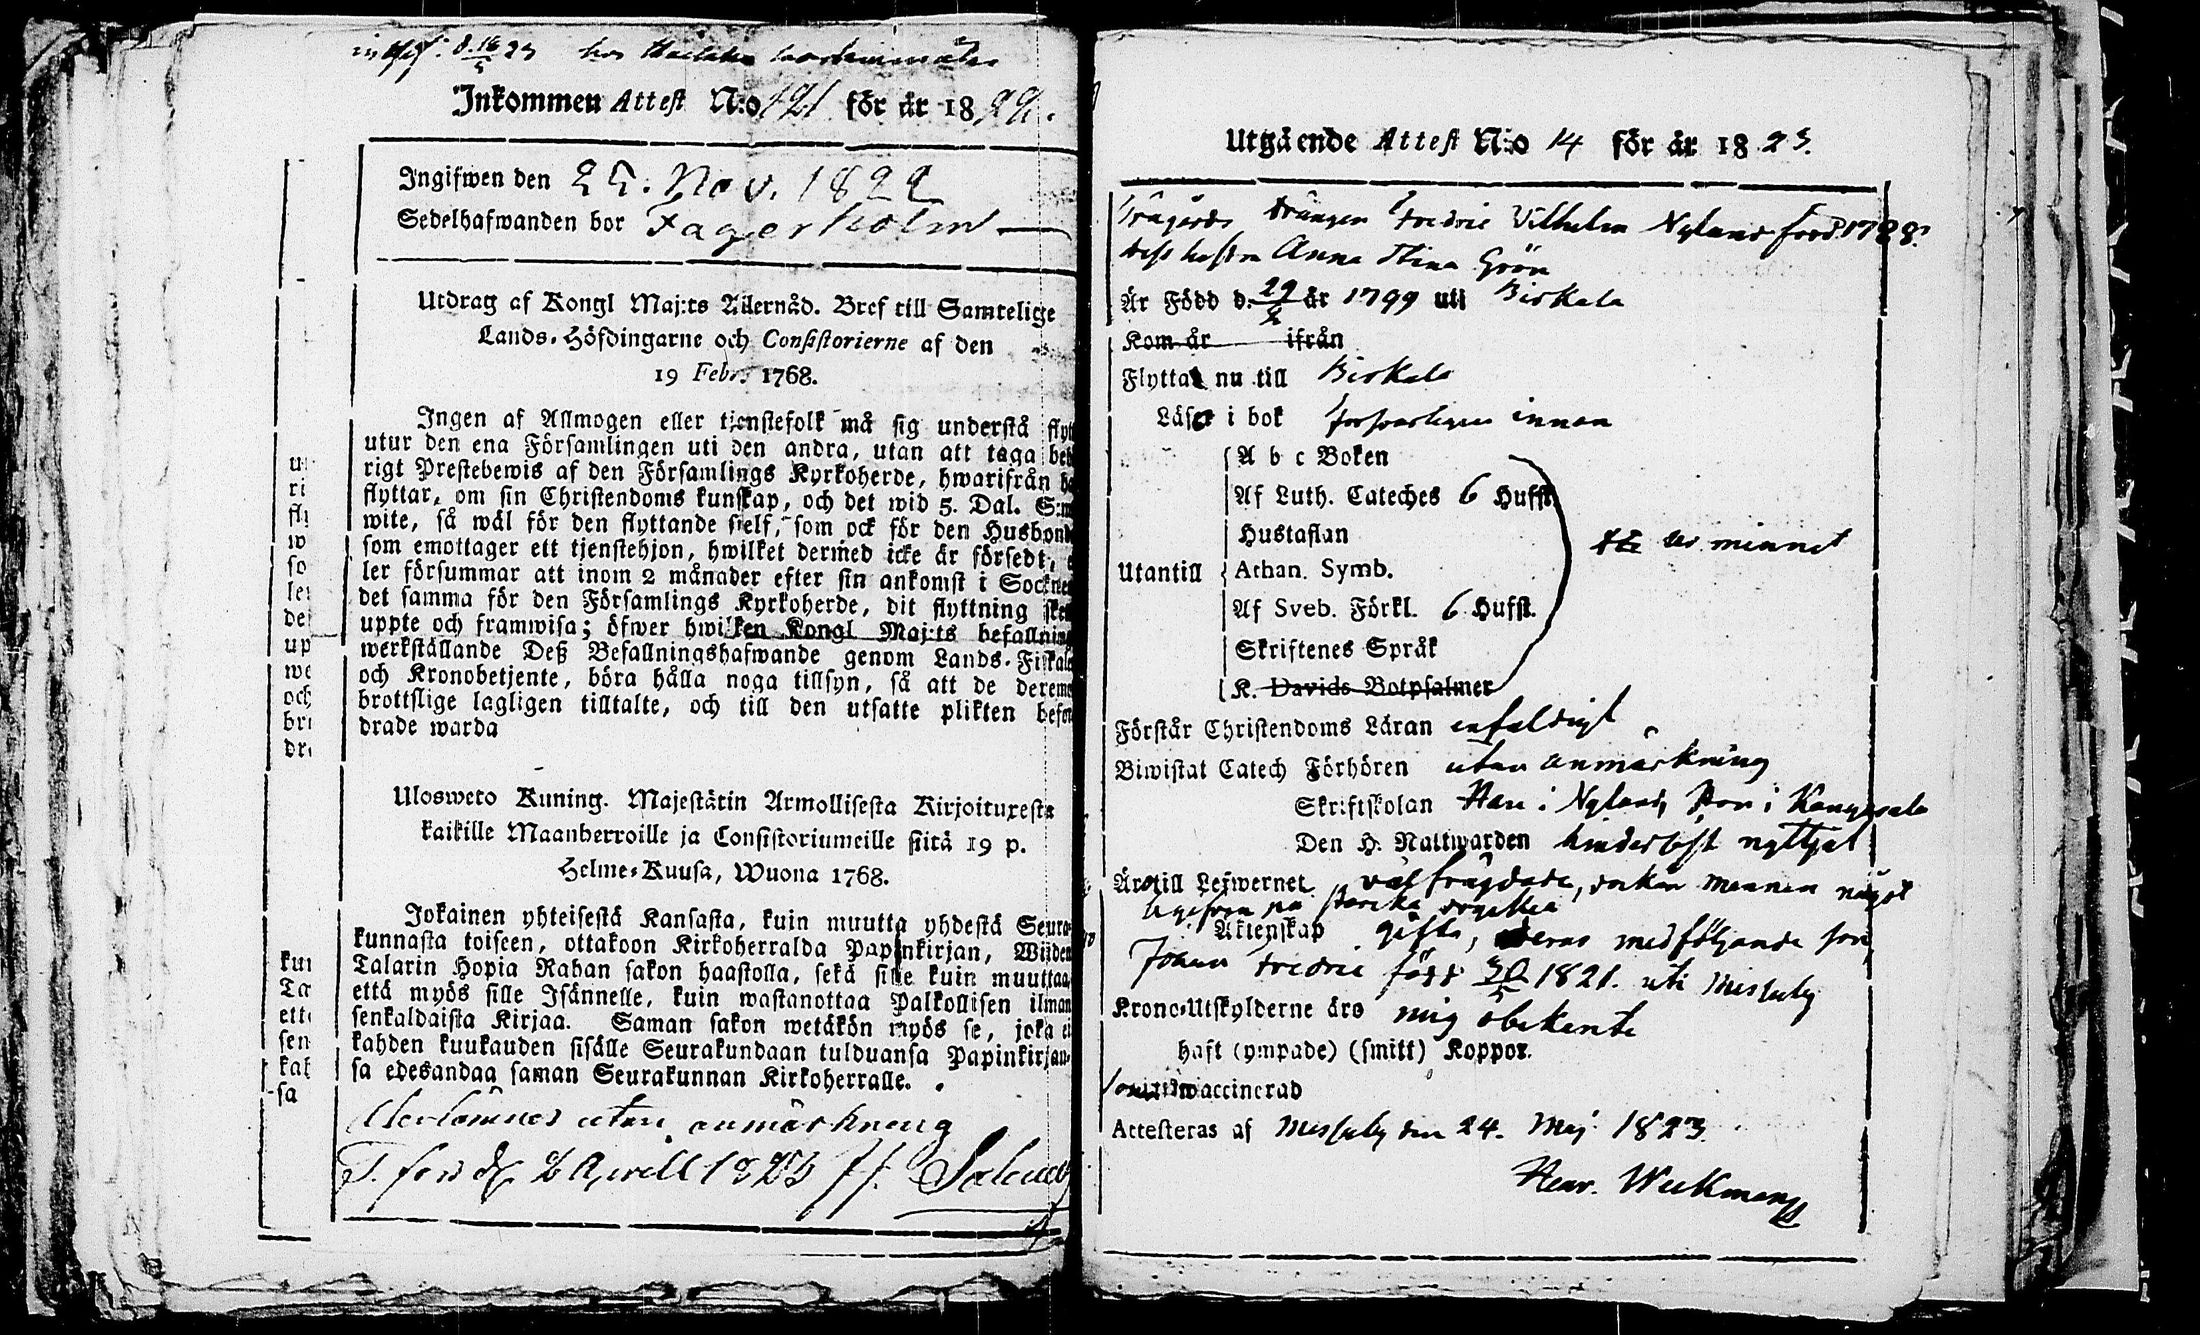 Inkommen Attest N:o 121 för år 1822.
Ingifwen den 25. Nov. 1822
Sedelhafwanden bor Fagerholm
Utdrag af Kongl Maj:ts Allernåd. Bref till Samtelige
Lands-Höfdingarne och Consistorierne af den
19 Febr. 1768.
Ingen af Allmogen eller tjenstefolk må sig understå flytt
utur den ena Församlingen uti den andra, utan att taga beh
rigt Prestebewis af den Församlings Kyrkoherde, hwarifrån h
flyttar, om sin Christendoms kunskap, och det wid 5. Dal. S:m
wite, så wäl för den flyttande sielf, som ock för den Husbond
som emottager ett tjenstehjon, hwilket dermed icke är försedt, e
ler försummar att inom 2 månader efter sin ankomst i Socknen
det samma för den Församlings Kyrkoherde, dit flyttning sked
uppte och framwisa; öfwer hwilken Kongl Maj:ts befallning
werkställande Deß Befallningshafwande genom Lands-Fiskale
och Kronobetjente, böra hålla noga tillsyn, så att de deremo
brottslige lagligen tilltalte, och till den utsatte plikten befor
drade warda
Ulosweto Kuning. Majestätin Armollisesta Kirjoituxesta
kaikille Maanherroille ja Consistoriumeille siitä 19 p.
Helme-Kuusa, Wuona 1768.
Jokainen yhteisestä Kansasta, kuin muutta yhdestä Seura-
kunnasta toiseen, ottakoon Kirkoherralda Papinkirjan, Wijden
Talarin Hopia Rahan sakon haastolla, sekä sille kuin muuttaa,
että myös sille Isännelle, kuin wastanottaa Palkollisen ilman
senkaldaista Kirjaa. Saman sakon wetäkön myös se, joka ei
kahden kuukauden sisälle Seurakundaan tulduansa Papinkirjan-
sa edesandaa saman Seurakunnan Kirkoherralle.
utan anmärkning
T. fors d. 2 Aprill 1823
Utgående Attest N:o 14 för år 1823.
Trägårds drängen Fredric Vilhelm Nyland född 1788.
dess hustru Anna Stina Grön
Är Född d. 29 år 1799 uti Birkala
Kom år ifrån
Flytta nu till Birkala
Läser i bok försvarligen innan
A b c Boken
Af Luth. Cateches 6 Hufst.
Hustaflan
Utantill Athan. Symb.
Af Sveb. Förkl. 6 Hufst.
Skriftenes Språk
K. Davids Botpsalmer
ur minnet
Förstår Christendoms Läran enfaldigt
Biwistat Catech Förhören utan anmärkning
Skriftskolan Han i Nyland, hon i Kangasala
Den H. Nattwarden hinderlöst nyttjat
Äro till Lefwernet välfrägdade, mannen något
Äktenskap gifta, deras medföljande son,
Johan Fredric född 30/5 1821. uti Messuby
Krono-Utskylderne äro mig obekante
haft (ympade) (smitt) Koppor.
waccinerad
Attesteras af Messuby den 24. Maj 1823.
Henr. Weckman